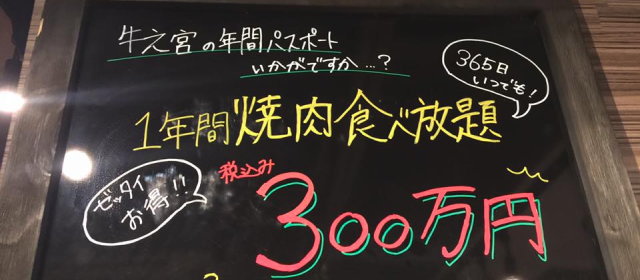 牛之宮の年間パスポート
いかがですか…?
365日
いつでも!
1年間焼肉食べ放題
ゼッタイ
お得!!
税込み
300万円